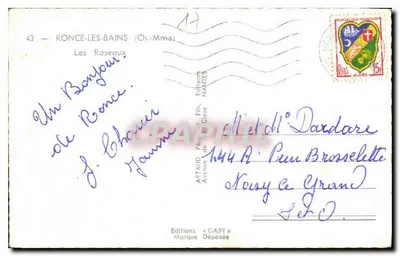 17
43 - RONCE-LES-BAINS (Ch.-Mme)
Les Roseaux
Un Bonjour
de Ronce.
J. Chauvir
Janine
ARTAUD Père et Fils, Editeurs
Avenue de la Close NANTES
M et Me Dardare
144 A Pierre Brossolette
Noisy Ce Grand
S et O.
Editions « GABY »
Marque Déposée